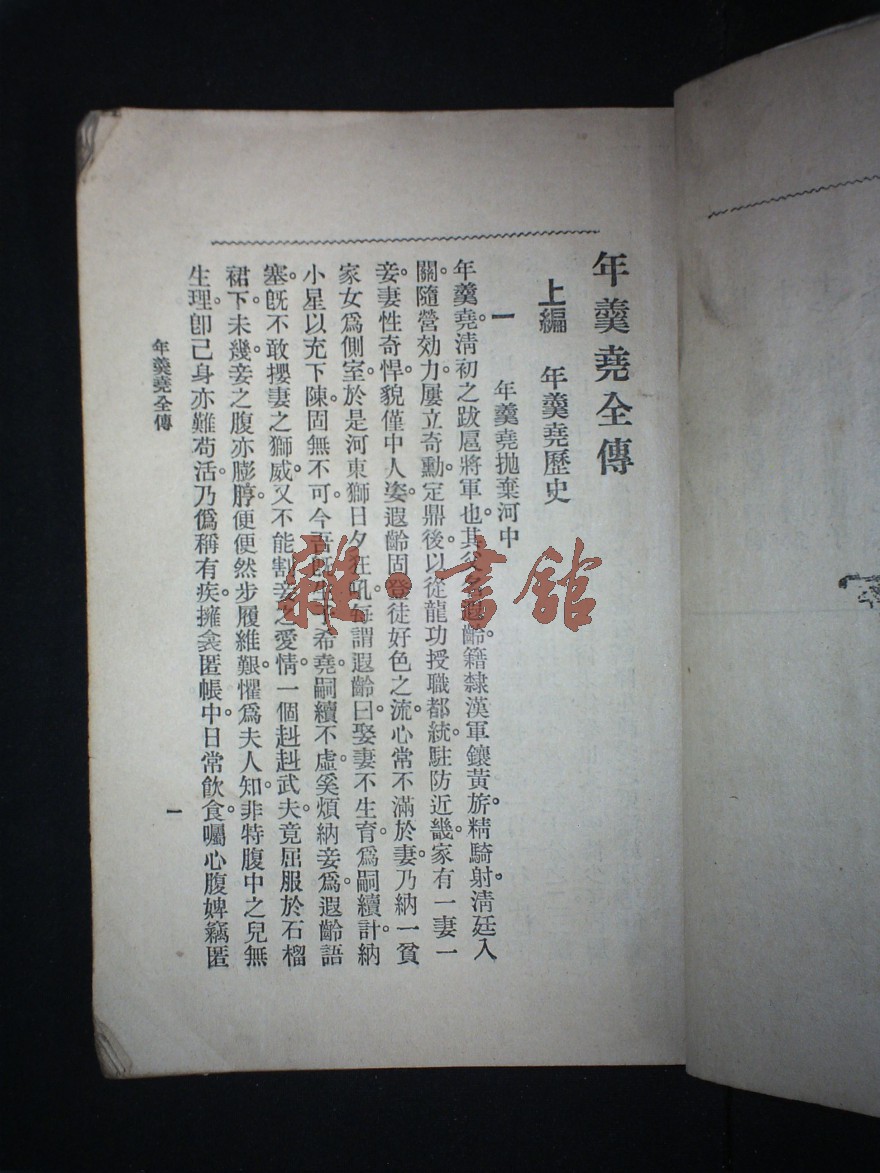 年羹堯全傳
上編 年羹堯歷史
一 年羹堯抛棄河中
年羹堯。淸初之跋扈將軍也。其父名遐齡。籍隸漢軍鑲黃旂。精騎射。淸廷入
關。隨營効力。屢立奇勳。定鼎後。以從龍功授職都統。駐防近畿。家有一妻一
妾。妻性奇悍。貌僅中人姿。遐齡固登徒好色之流。心常不滿於妻。乃納一貧
家女爲側室。於是河東獅日夕狂吼。每謂遐齡曰。娶妻不生育。爲嗣續計。納
小星以充下陳。固無不可。今吾旣生希堯。嗣續不虛。奚煩納妾爲。遐齡語
塞。旣不敢攖妻之獅威。又不能割妾之愛情。一個赳赳武夫。竟屈服於石榴
裙下。未幾。妾之腹亦膨脝。便便然步履維艱。懼爲夫人知。非特腹中之兒無
生理。卽己身亦難苟活。乃僞稱有疾。擁衾匿帳中。日常飲食。囑心腹婢竊匿
年羹堯全傳
一
雜·書館